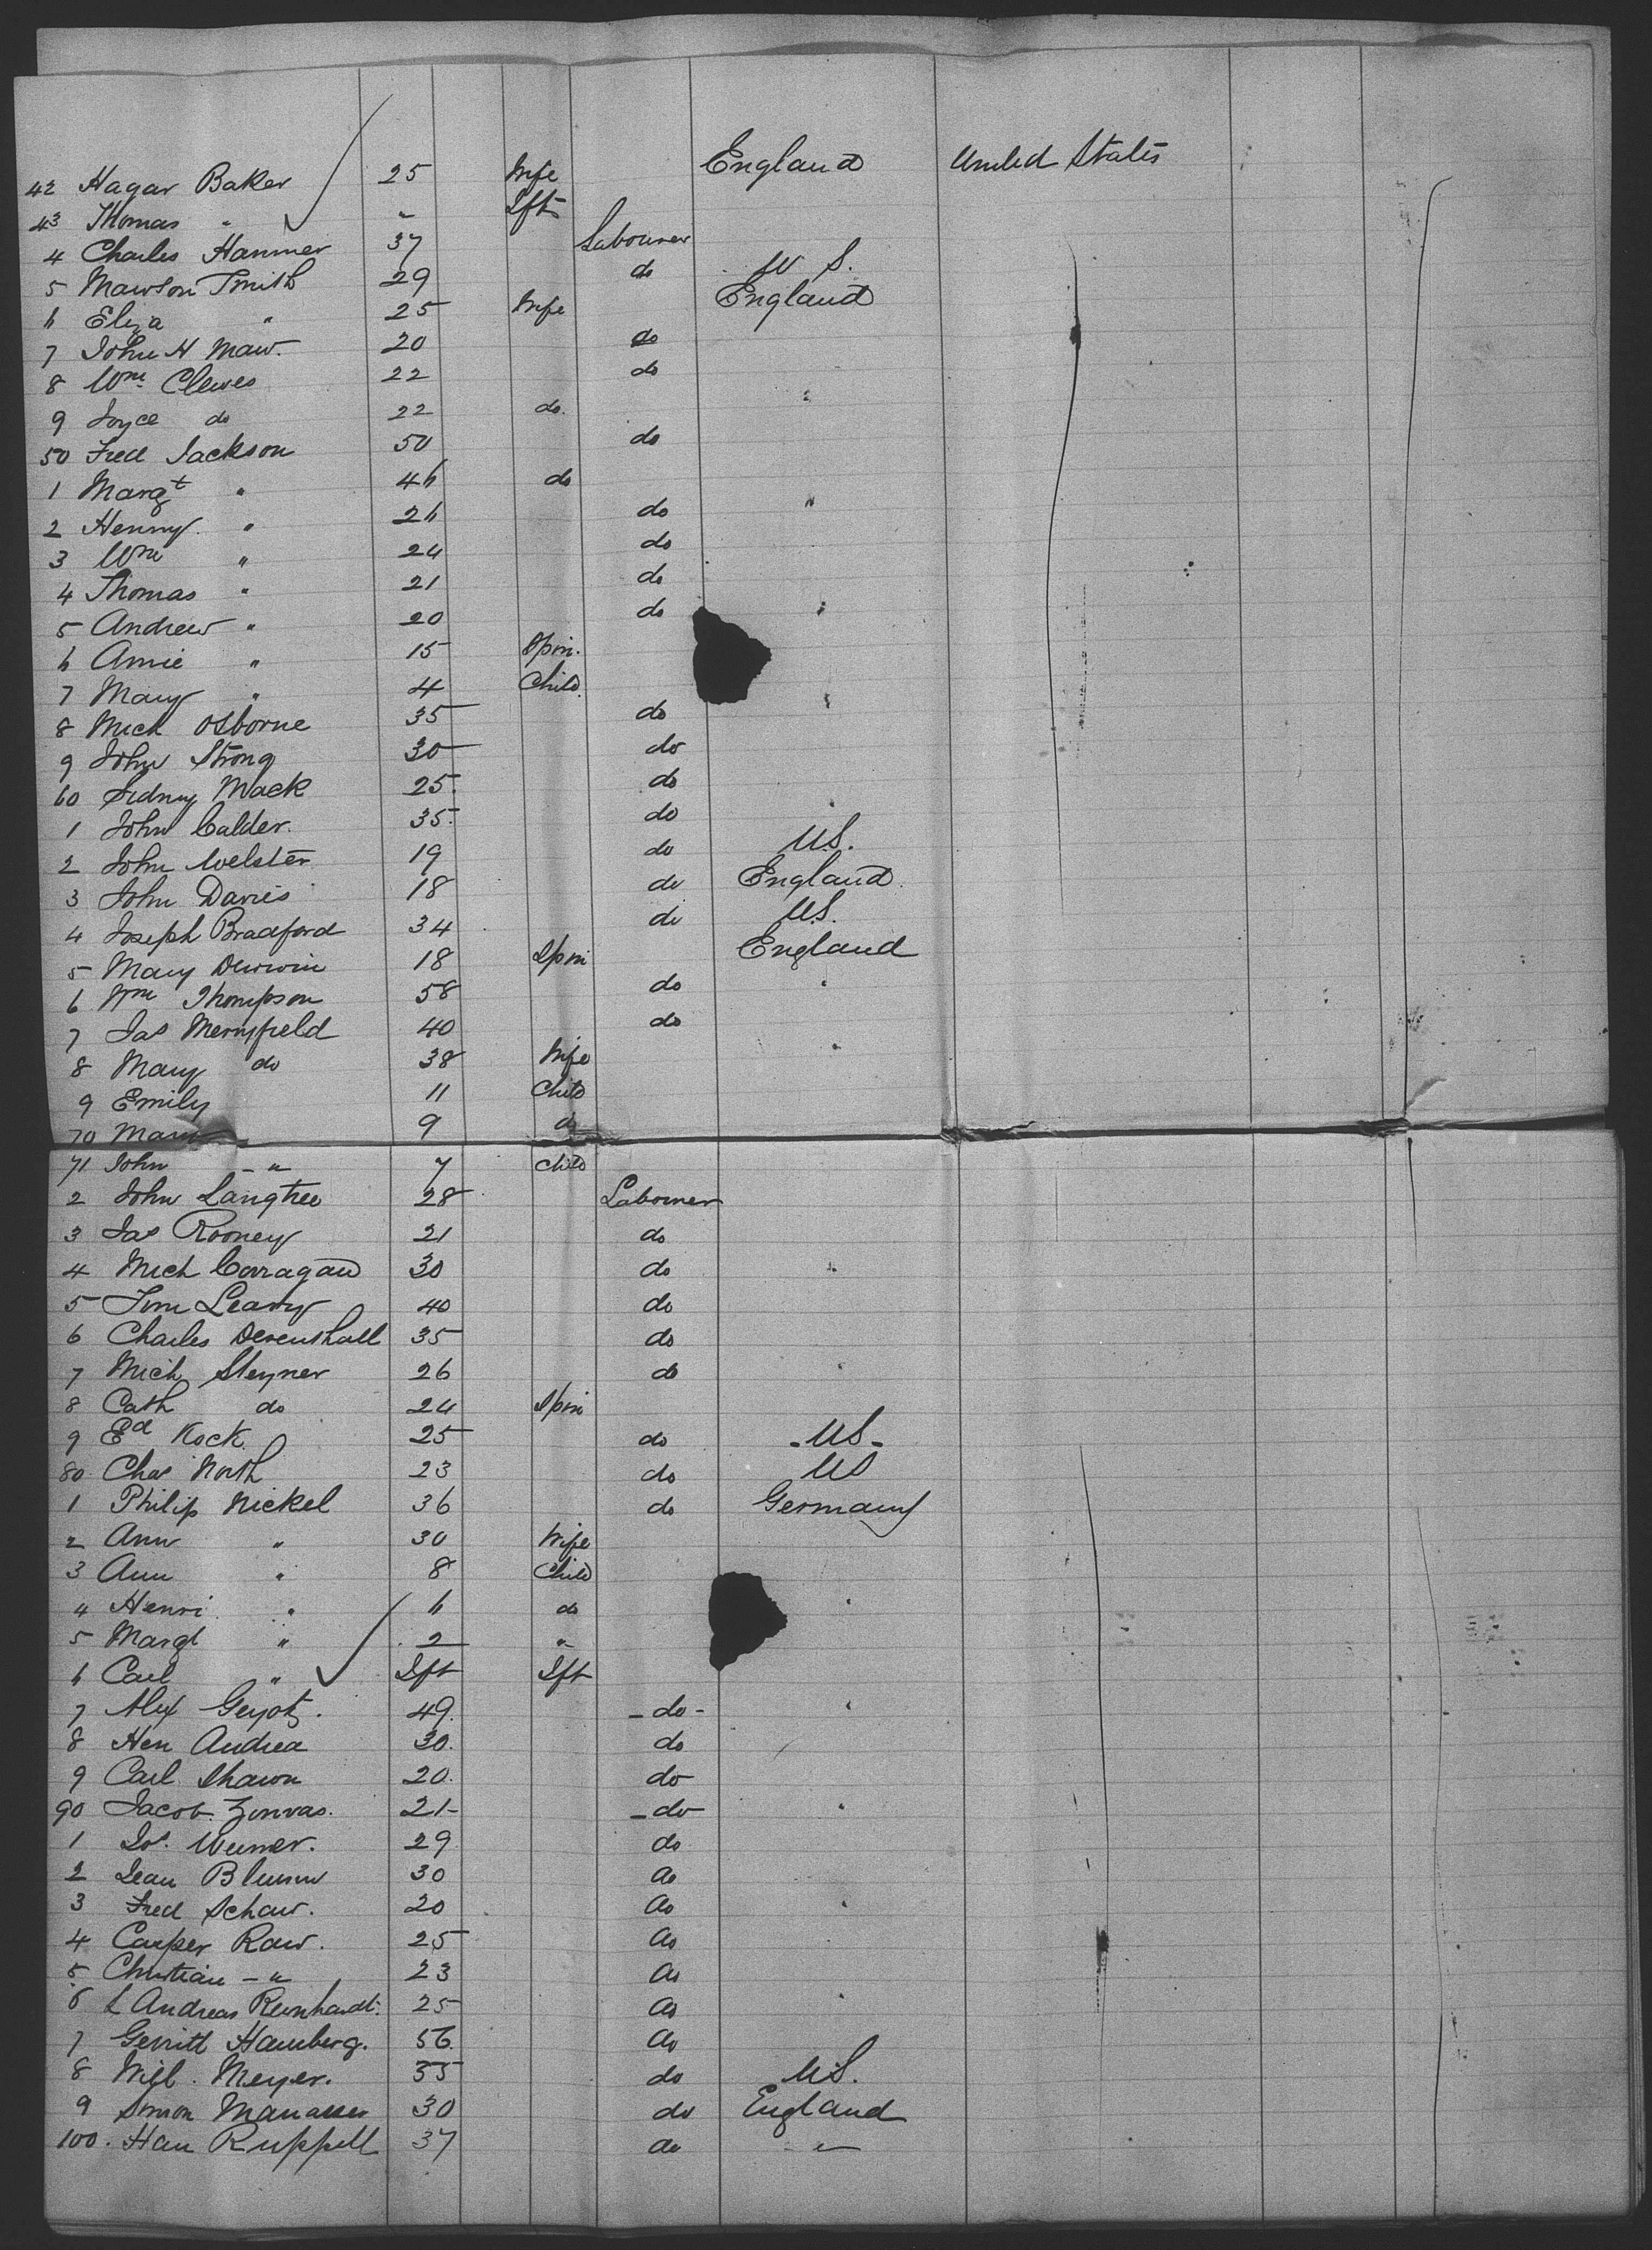 42 Hagar Baker 25 Wife England United States
43 Thomas " " Ift
4 Charles Hammer 37 Labourer
5 Mawson Smith 29 do U S.
6 Eliza " 25 Wife England
7 John H Maw. 20 do
8 Wm Clewes 22 do
9 Joyce do 22 do. "
50 Fred Jackson 50 do
1 Margt " 46 do
2 Henry " 26 do "
3 Wm " 24 do
4 Thomas " 21 do
5 Andrew " 20 do "
6 Amie " 15 Spin.
7 Mary " 4 Child.
8 Mich Osborne 35 do "
9 John Strong 30 do
60 Sidney Mack 25. do
1 John Calder. 35. do "
2 John Webster 19 do U.S.
3 John Davies 18 do England.
4 Joseph Bradford 34 do U.S.
5 Mary 18 Spin England
6 Wm Thompson 58 do "
7 Jas Merryfield 40 do
8 Mary do 38 Wife "
9 Emily 11 Child
70 Mary 9 do
71 John - " 7 Child
2 John Langtree 28 Labourer
3 Jas Rooney 21 do
4 Mich Corragan 30 do "
5 Tim Leary 40 do
6 Charles Devenshall 35 do
7 Mich Steyner 26 do "
8 Cath do 24 Spin
9 Ed Kock 25 do - US -
80 Chas North 23 do US
1 Philip Nickel 36 do Germany
2 Ann " 30 Wife
3 Ann " 8 Child
4 Henri " 6 do "
5 Margt " 2 "
6 Carl " Ift Ift
7 Alex 49. - do - "
8 Hen Andrea 30. do
9 Carl Shawn 20. do
90 Jacob Zinvas. 21- - do - "
1 Jos. 29 do
2 Jean 30 do
3 Fred Schaw. 20 do "
4 Casper Raw. 25 do
5 Christian - " 23 do
6 L Andreas Reinhardt. 25 do "
7 Gerritt Hamberg. 56. do
8 Wilh. Meyer. 35 do U.S.
9 Simon Manasser 30 do England
100. Han Ruppell 37 do "